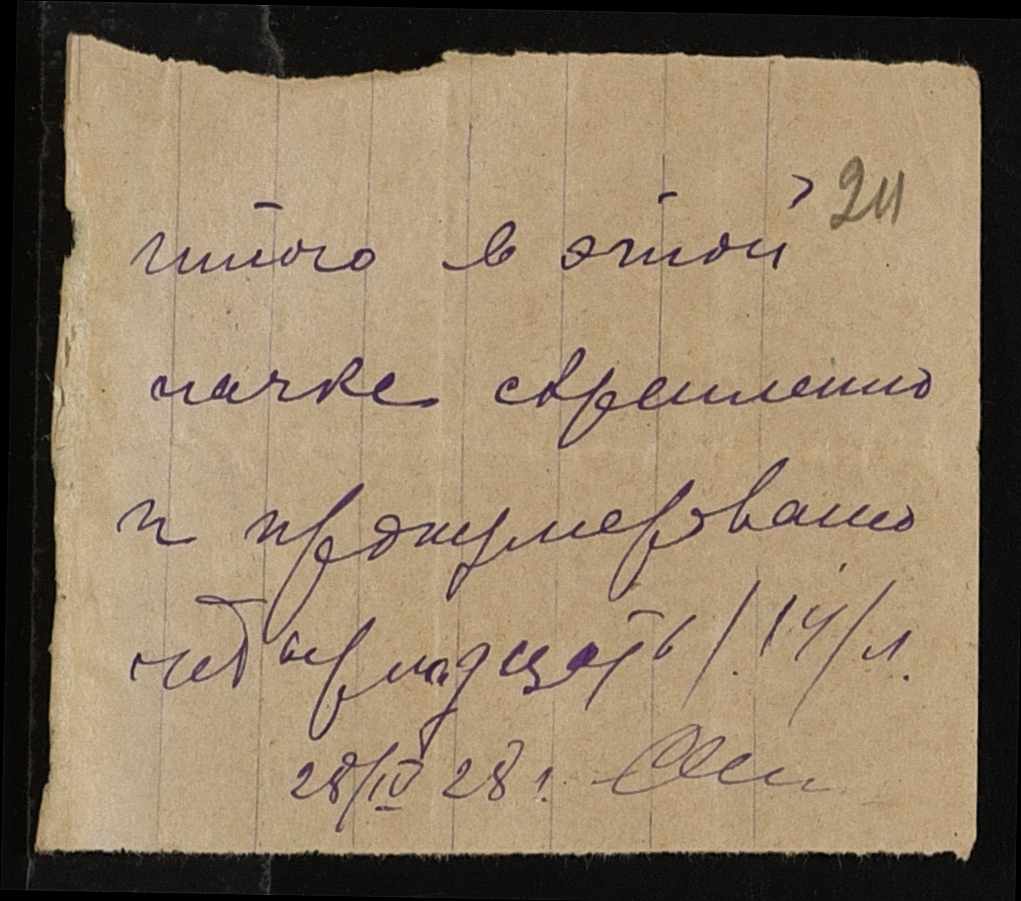 24
итого в этой
пачке скреплено
и пронумеровано
четырнадцать /14/ л.
28/IV 28 г.